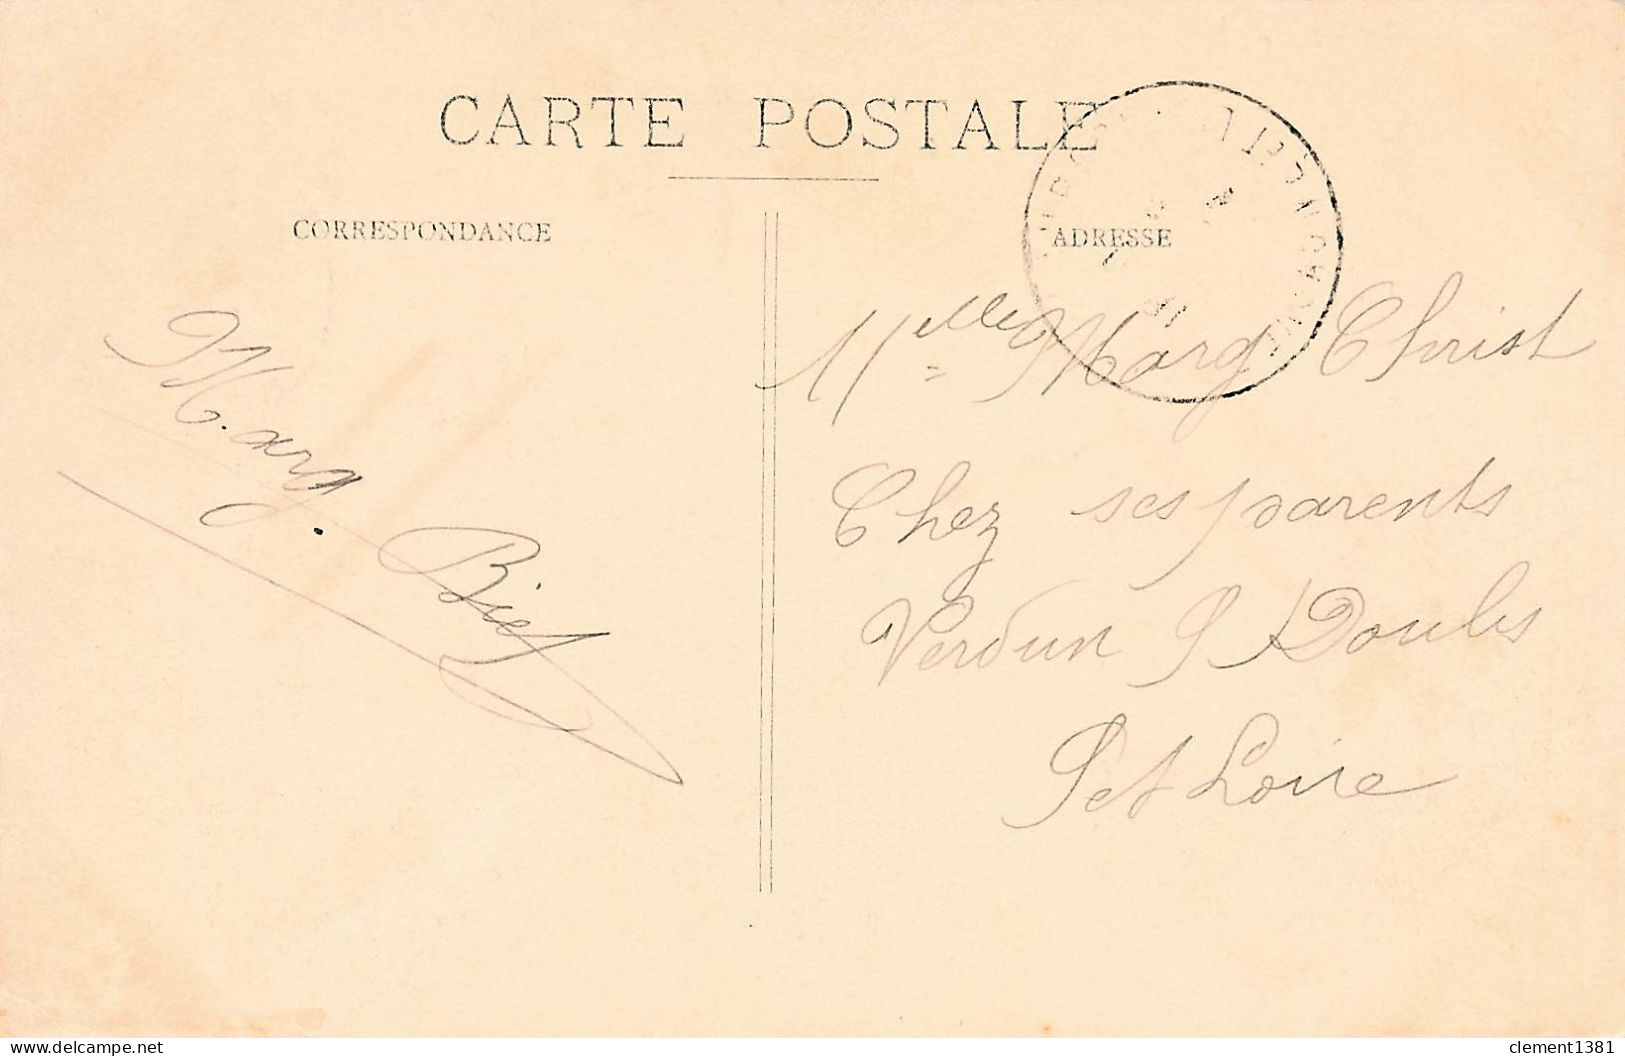 CARTE POSTALE
CORRESPONDANCE
ADRESSE
Marg. Biet
Melle Marg Christ
Chez ses parents
Verdun S Doubs
S et Loire
delcampe.net
clement1381